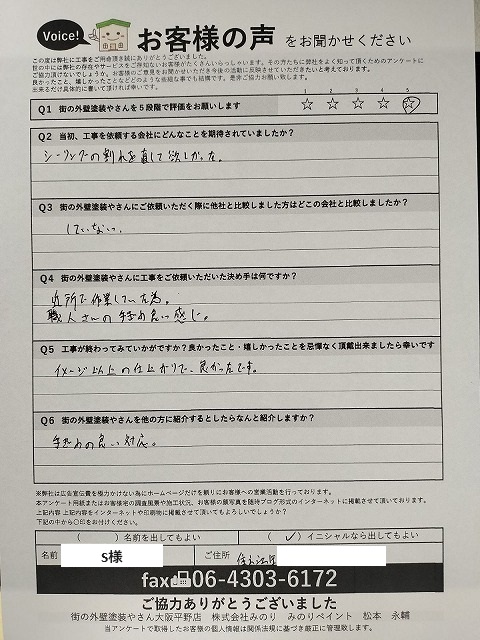 Voice!
お客様の声 をお聞かせください
この度は弊社に工事をご用命頂き誠にありがとうございました。
世の中には弊社の存在やサービスをご存知ないお客様がたくさんいらっしゃいます。その方たちに弊社をよく知って頂くためのアンケートに
ご協力頂けないでしょうか。お客様のご意見をお聞かせいただき今後の活動に反映させていただきたいと考えております。
良かったこと、嬉しかったことなどどのような些細な事でも結構です。是非ご協力お願い致します。
出来るだけ具体的に書いて頂ければ幸いです。
1 2 3 4 5
Q1 街の外壁塗装やさんを５段階で評価をお願いします ☆ ☆ ☆ ☆ ☆
Q2 当初、工事を依頼する会社にどんなことを期待されていましたか?
シーリングの割れを直して欲しかった。
Q3 街の外壁塗装やさんにご依頼いただく際に他社と比較しました方はどこの会社と比較しましたか?
していない。
Q4 街の外壁塗装やさんに工事をご依頼いただいた決め手は何ですか?
近所で作業していた為。
職人さんの手際の良い感じ。
Q5 工事が終わってみていかがですか?良かったこと・嬉しかったことを忌憚なく頂戴出来ましたら幸いです
イメージ以上の仕上がりで、良かったです。
Q6 街の外壁塗装やさんを他の方に紹介するとしたらなんと紹介しますか?
手際の良い対応。
※弊社は広告宣伝費を極力かけない為にホームページだけを頼りにお客様への営業活動を行っております。
本アンケート用紙またはお客様宅の調査風景や施工状況、お客様の顔写真を随時ブログ形式のインターネットに掲載させて頂いております。
上記内容 上記内容をインターネットや印刷物に掲載させて頂いてもよろしいでしょうか?
下記の中から〇印をお付けください。
( )名前を出してもよい ( ✓ )イニシャルなら出してもよい
名前 S様 ご住所 住之江区
fax 06-4303-6172
ご協力ありがとうございました
街の外壁塗装やさん大阪平野店 株式会社みのり みのりペイント 松本 永輔
当アンケートで取得したお客様の個人情報は関係法規に基づき厳正に管理致します。